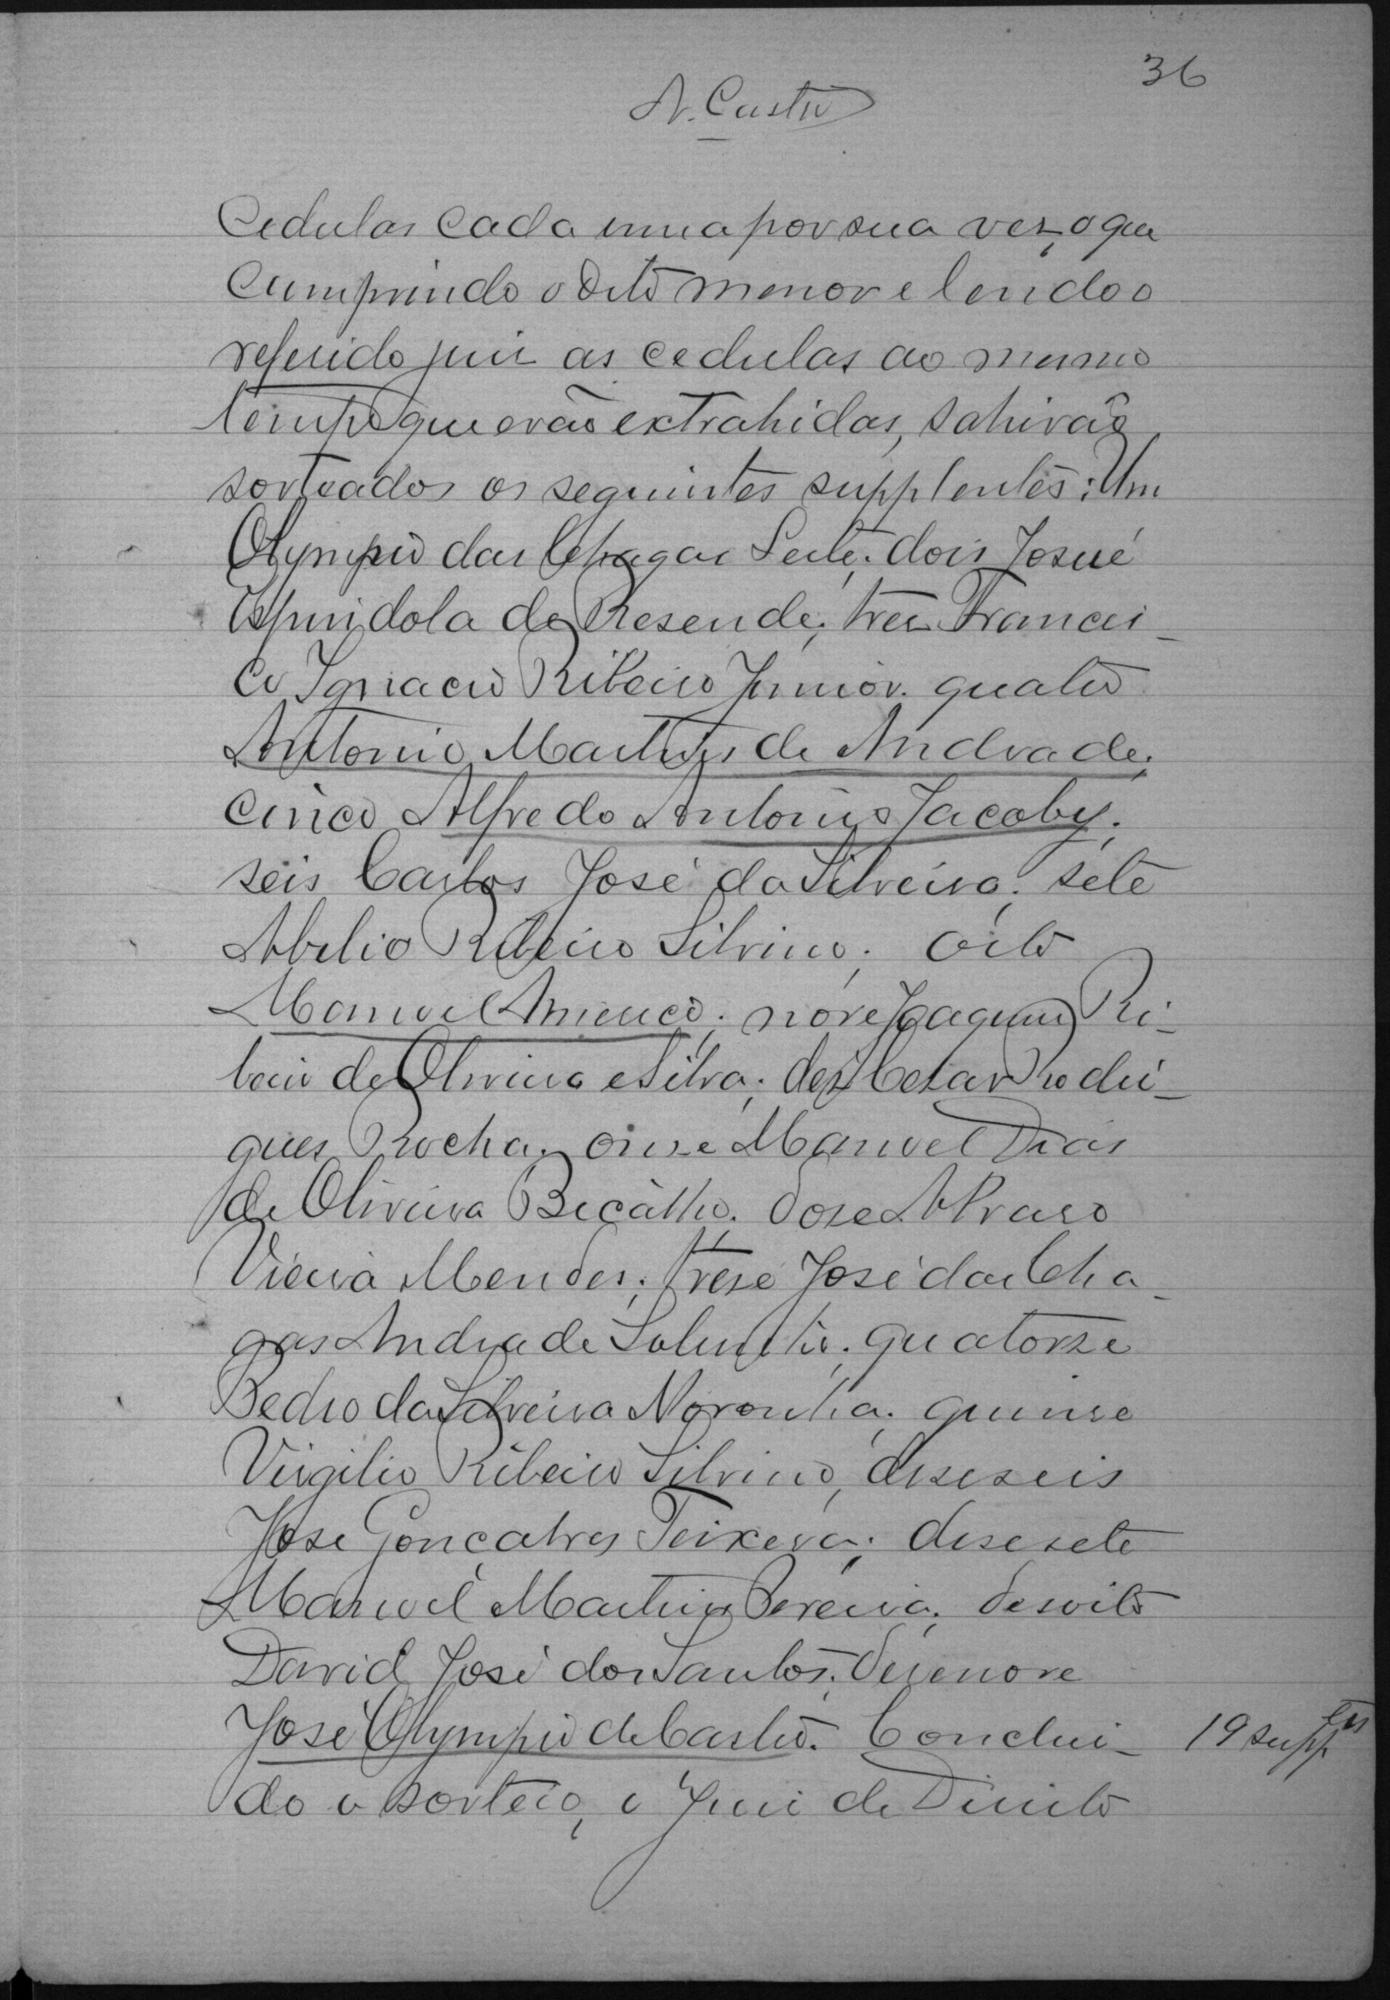 36
A. Castro
Cedulas cada uma por sua vez, o que
cumprindo o dito menor e lendo o
referido juiz as cedulas ao mesmo
tempo que erão extrahidas, sahirão
sorteados os seguintes supplentes: Um
Olympio das Chagas Leite; dois Josué
Espindola de Resende; tres Francis-
co Ignacio Ribeiro Junior. quatro
Antonio Martins de Andrade;
cinco Alfredo Antonio Jacoby;
seis Carlos José da Silveira; sete
Abilio Ribeiro Silvino; oito
Manoel Americo; nove Joaquim Ri-
beiro de Oliveira e Silva; dez Cesar Rodri-
gues Rocha; onze Manoel Dias
de Oliveira Bicalho; dose Alvaro
Vieira Mendes; trese José das Cha-
gas Andrade Sobrinho; quatorse
Pedro da Silveira Noronha; quinse
Virgilio Ribeiro Silvino; deseseis
José Gonçalves Teixeira; desesete
Manoel Martins Pereira; desoito
David José dos Santos; desenove
José Olympio de Castro. Conclui-
19 supptes
do o sorteio, o Juiz de Direito